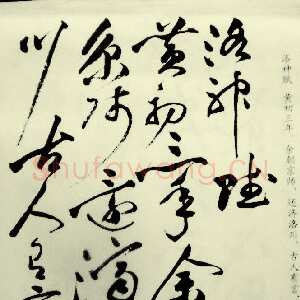 洛神賦 黃初三年 余朝京師 还济洛川 古人有言
洛神賦
黃初三年余
京師還濟
川古人有
Shufawang.CN